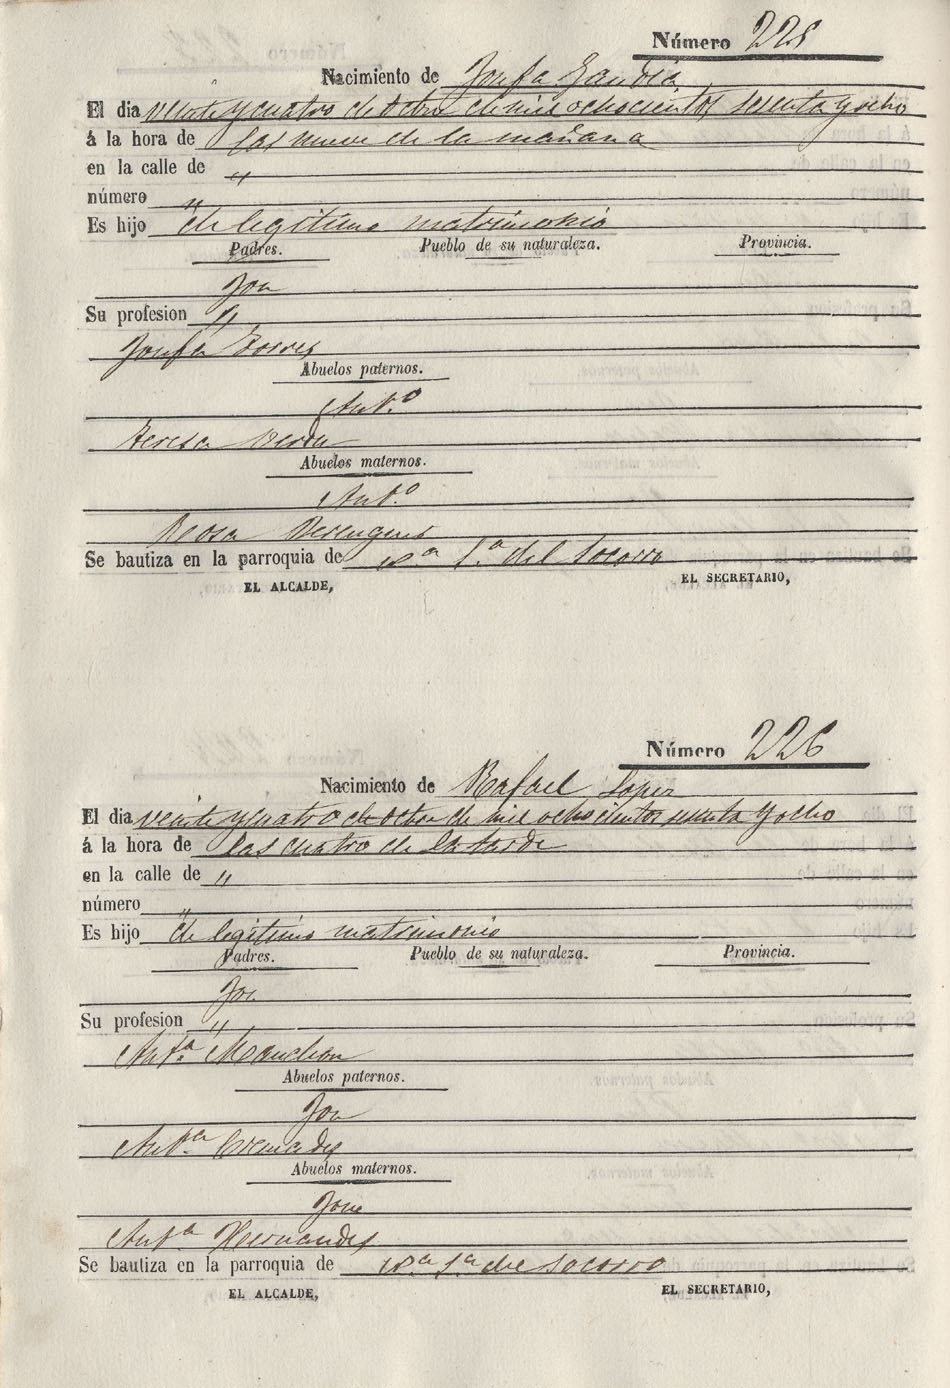 Número 225
Nacimiento de Josefa Gandía
El dia veinte y cuatro de octbre de mil ochocientos sesenta y ocho
á la hora de las nueve de la mañana
en la calle de "
número "
Es hijo de legitimo matrimonio
Padres. Pueblo de su naturaleza. Provincia.
José
Su profesion "
Josefa Torres
Abuelos paternos.
Ant.º
Teresa Verdu
Abuelos maternos.
Ant.º
Rosa Berenguer
Se bautiza en la parroquia de N.ª S.ª del Socorro
EL ALCALDE, EL SECRETARIO,
Número 226
Nacimiento de Rafael Lopez
El dia veinte y cuatro de octbre de mil ochocientos sesenta y ocho
á la hora de las cuatro de la tarde
en la calle de "
número "
Es hijo de legitimo matrimonio
Padres. Pueblo de su naturaleza. Provincia.
José
Su profesion "
Ant.ª Manchon
Abuelos paternos.
José
Ant.ª Cremades
Abuelos maternos.
José
Ant.ª Hernandez
Se bautiza en la parroquia de N.ª S.ª del Socorro
EL ALCALDE, EL SECRETARIO,